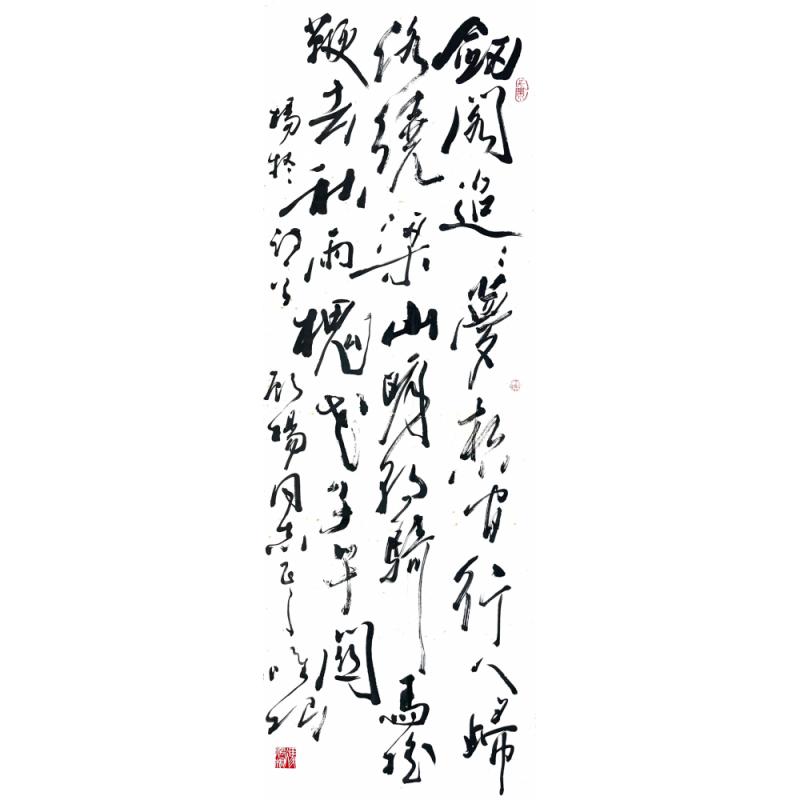 劍閣迢迢夢想間行人歸
路繞梁山明朝騎馬搖
鞭去秋雨槐花子午關
楊凝詩 楊同志正之